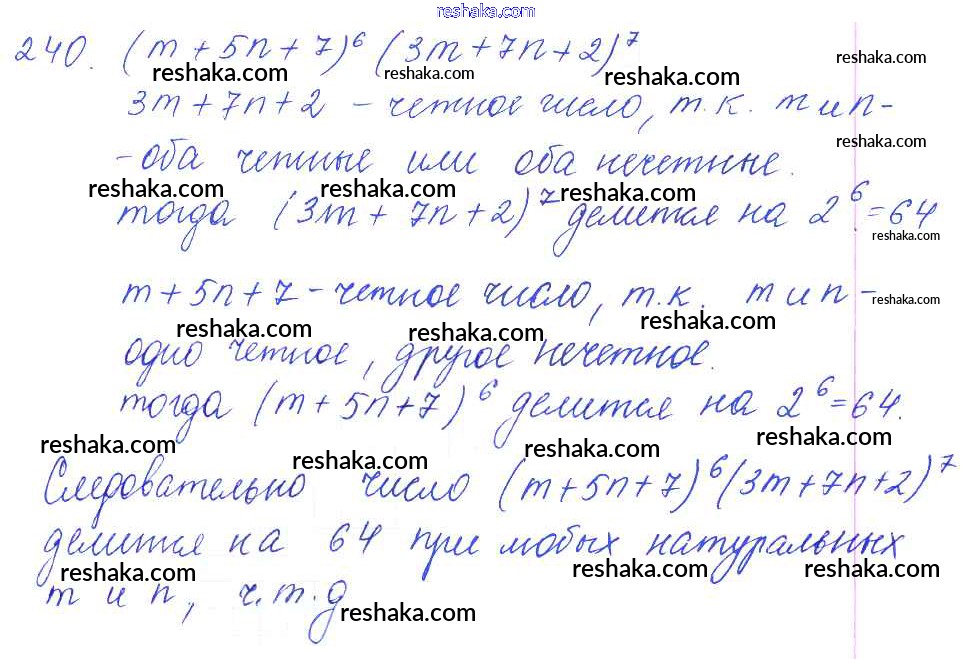 reshaka.com
240. (m + 5n + 7)⁶ (3m + 7n + 2)⁷
reshaka.com reshaka.com reshaka.com reshaka.com
3m + 7n + 2 – четное число, т.к. m и n –
reshaka.com
– оба четные или оба нечетные.
reshaka.com reshaka.com reshaka.com
тогда (3m + 7n + 2)⁷ делится на 2⁶ = 64
reshaka.com
m + 5n + 7 – четное число, т.к. m и n –
reshaka.com
reshaka.com reshaka.com reshaka.com
одно четное, другое нечетное.
тогда (m + 5n + 7)⁶ делится на 2⁶ = 64.
reshaka.com reshaka.com reshaka.com reshaka.com
Следовательно число (m + 5n + 7)⁶ (3m + 7n + 2)⁷
делится на 64 при любых натуральных
reshaka.com reshaka.com reshaka.com
m и n, ч.т.д
reshaka.com